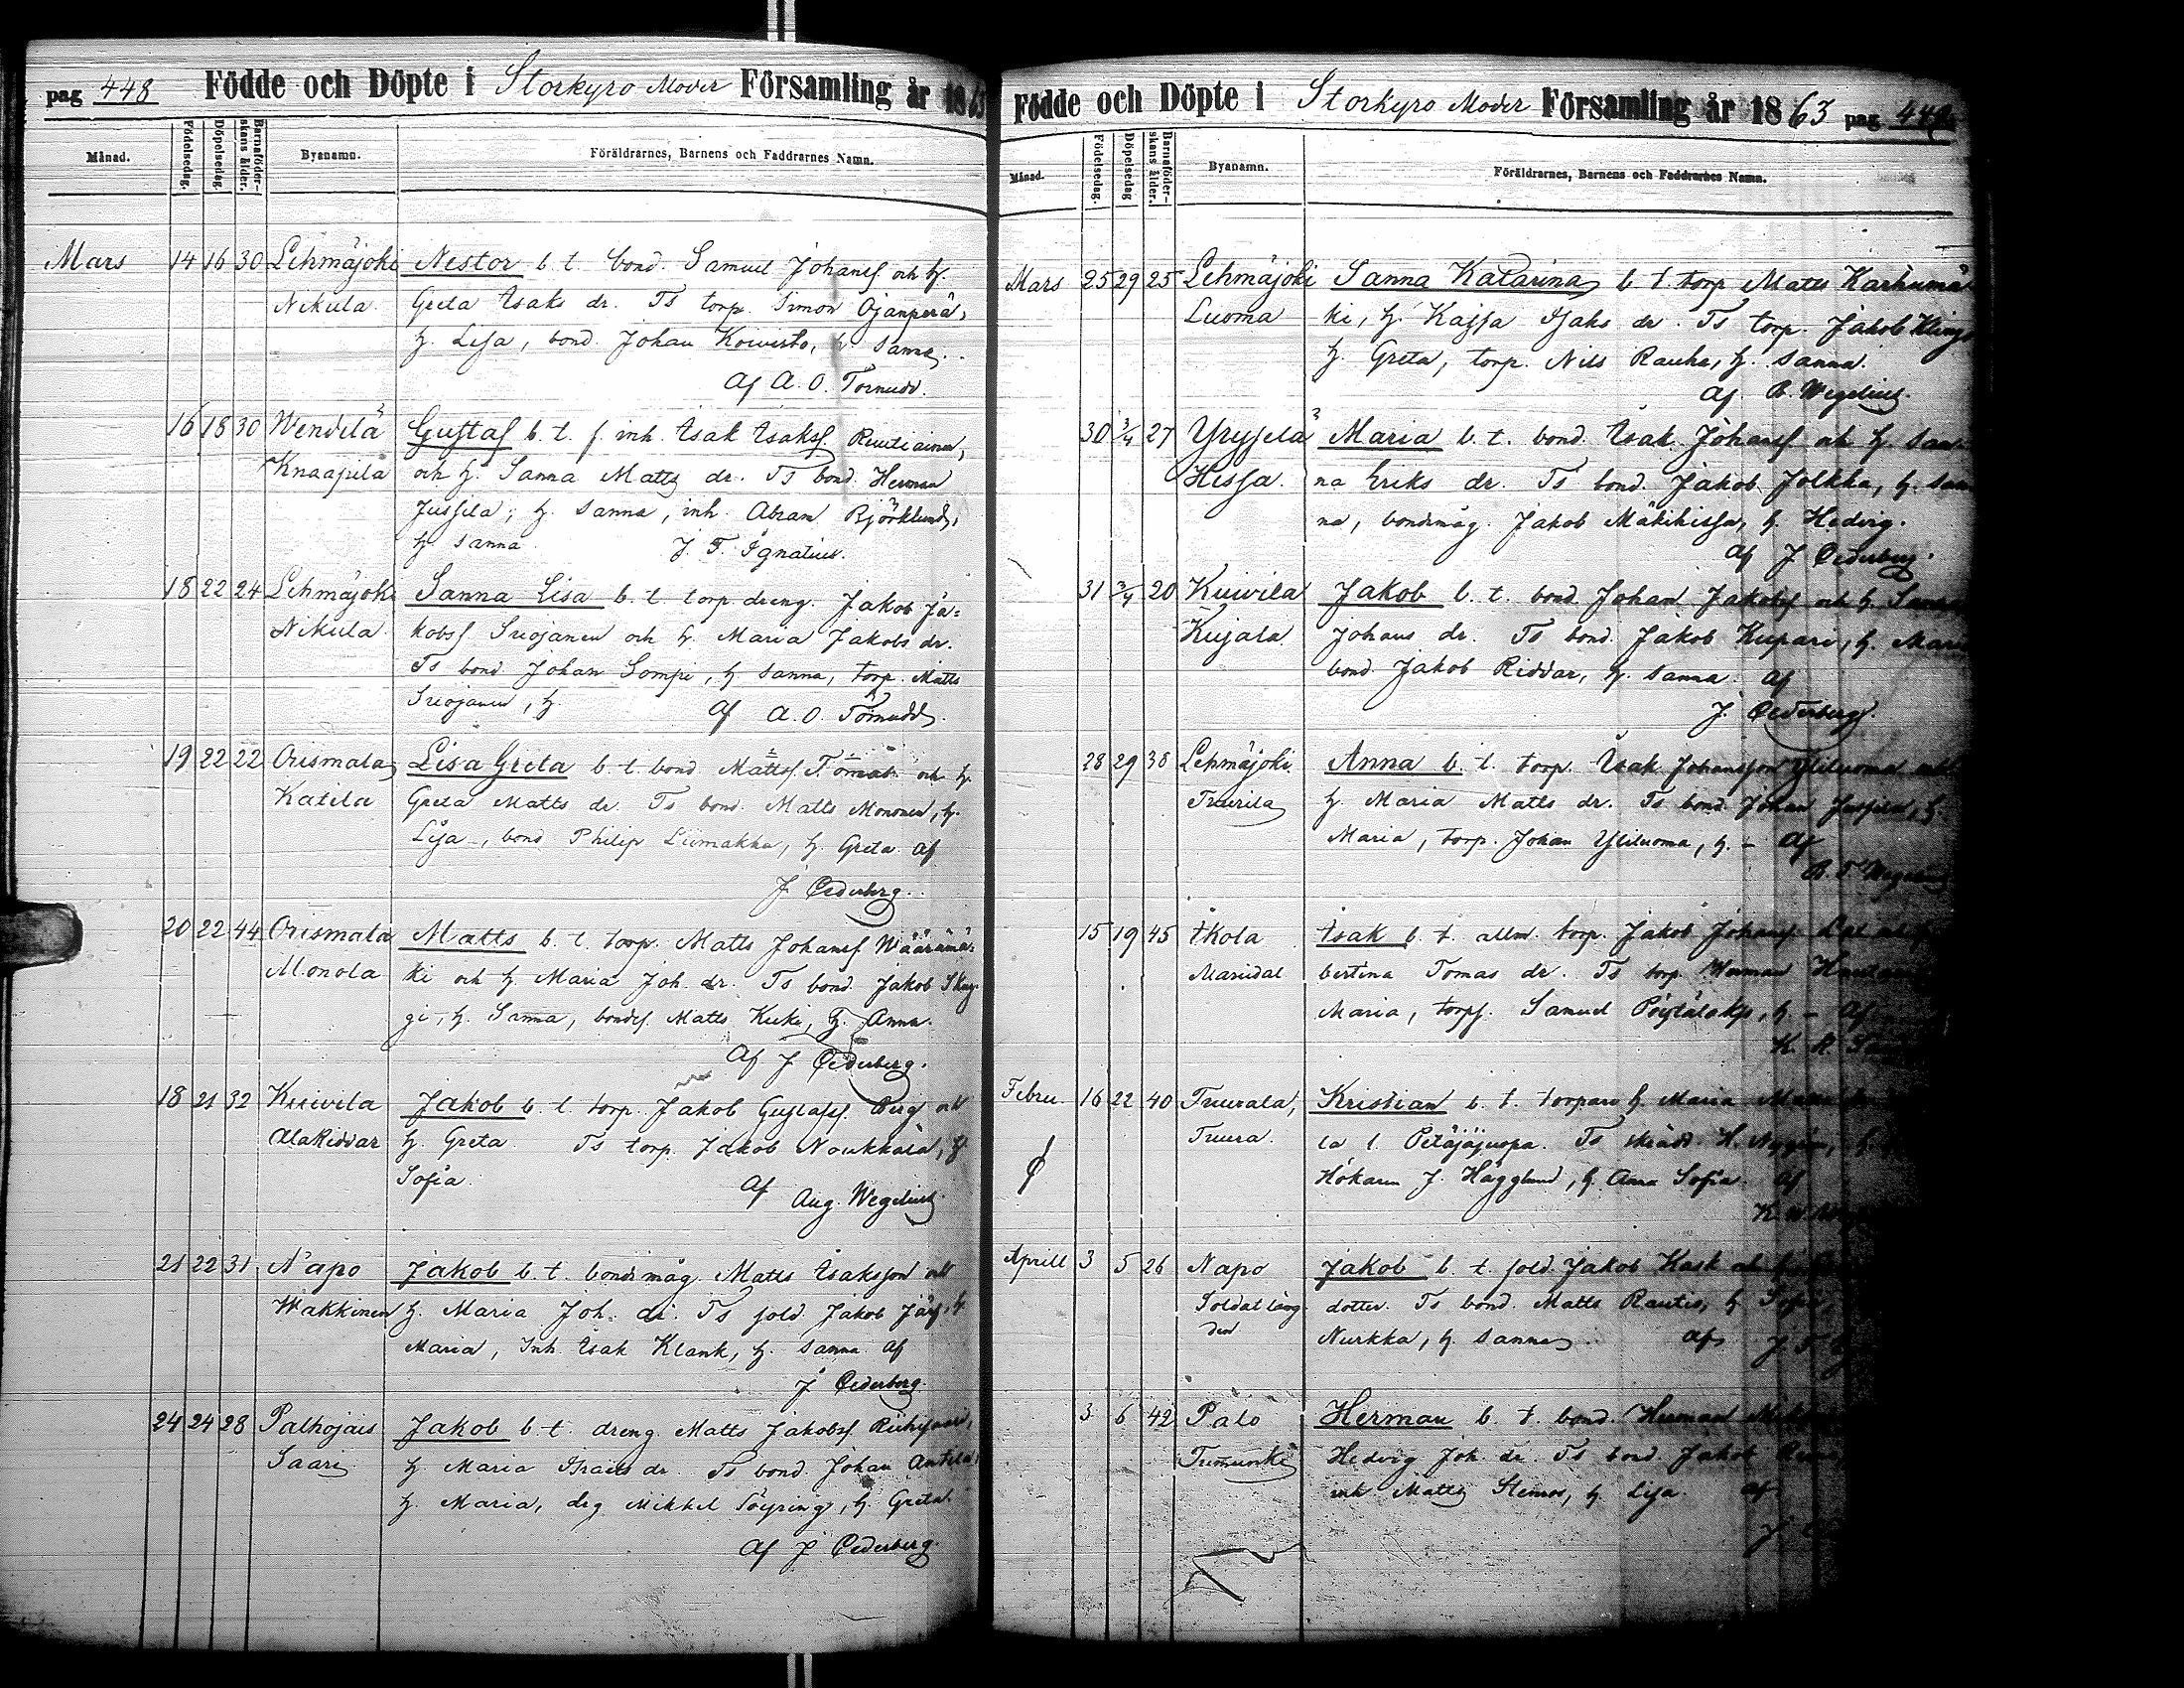 pag 448 Födde och Döpte i Storkyro Moder Församling år 1863
Månad. Födelsedag. Döpelsedag. Barnaföderskans ålder. Byanamn. Föräldrarnes, Barnens och Faddrarnes Namn.
Mars 14 16 30 Lehmäjoki Nestor b. t. bond. Samuel Johansf och h.
Nikula Greta Isaks dr. Ts torp. Simon Ojanperä,
h. Lisa, bond. Johan Koivisto, h. Sanna.
Af A. O. Törnudd.
16 18 30 Wendelä Gustaf b. t. f. inh. Isak Isaksf.
Knaapila och h. Sanna Matts dr. Ts bond. Herman
Jussila, h. Sanna, inh. Abram Björklund,
h. Sanna J. F. Ignatius.
18 22 24 Lehmäjoki Sanna Lisa b. t. torp. dreng. Jakob Ja-
Nikula kobsf och h. Maria Jakobs dr.
Ts bond Johan Lompi, h Sanna, torp. Matts
h. Af A. O. Törnudd.
19 22 22 Orismala Lisa Greta b. t. bond. Mattsf. och h.
Katila Greta Matts dr. Ts bond. Matts Mononen, h.
Lisa, bond Philip Liimakka, h. Greta. Af
J. Cederberg.
20 22 44 Orismala Matts b. t. torp. Matts Johansf Wäärämä-
Monola ki och h Maria Joh. dr. Ts bond. Jakob Skog-
gi, h. Sanna, bondes. Matts Keeki, h. Anna.
Af J Cederberg.
18 21 32 Kuivila Jakob b. t. torp. Jakob Gustafsf. Berg och
AlaRiddar h. Greta. Ts torp. Jakob Noukkala, h
Sofia. Af Aug. Wegelius
21 22 31 Napo Jakob b. t. bondemåg Matts Isaksson och
Wakkinen h. Maria Joh. dr. Ts sold Jakob Järf, h.
Maria, Inh. Isak Klank, h. Sanna. Af
J Cederberg.
24 24 28 Palhojais Jakob b. t. dreng Matts Jakobsf.
Saari h Maria Israels dr. Ts bond Johan Antila,
h. Maria, drg Mikkel Söyring, h. Greta.
Af J Cederberg.
Födde och Döpte i Storkyro Moder Församling år 1863 pag 449
Månad. Födelsedag. Döpelsedag Barnaföderskans ålder. Byanamn. Föräldrarnes, Barnens och Faddrarnes Namn.
Mars 25 29 25 Lehmäjoki Sanna Katarina b. t. torp Matts Karhumä
Luoma ki, h. Kajsa Isaks dr. Ts torp. Jakob Kling
h. Greta, torp. Nils Rauha, h. Sanna.
Af. B. Wegelius.
30 3/4 27 Yryselä Maria b. t. bond Isak Johansf och h. San-
Hissa. na Eriks dr. Ts bond. Jakob Jolkka, h. San
na, bondemåg. Jakob Mäkihissa, h. Hedvig.
Af J Cederberg.
31 3/4 20 Kuivila Jakob b. t. bond Johan Jakobsf och h. Sanna
Kujala Johans dr. Ts bond Jakob Kupari, h. Maria
bond Jakob Riddar, h. Sanna. Af
J. Cederberg.
28 29 38 Lehmäjoki Anna b. t. torp. Isak Johansson Yliluoma och
Truurila h. Maria Matts dr. Ts bond Johan Jussila, h.
Maria, torp. Johan Yliluoma, h. - Af
B. F. Wegelius
15 19 45 Ikola Isak b. t. allm. torp. Jakob Johansf
Mariedal bertina Tomas dr. Ts torp. Herman
Maria, torps. Samuel h. - Af
Febru. 16 22 40 Truurala, Kristian b. t. h. Maria
Truura. la l. Petäjäjuopa. Ts skrädd. H. Nygrén, h.
Hökaren J. Hägglund, h. Anna Sofia. Af
Aprill 3 5 26 Napo Jakob b. t. sold. Jakob Kask och h.
Soldat läng dotter. Ts bond. Matts Rautio, h Sofia,
den Nurkka, h. Sanna. Af J. F.
3 6 42 Palo Herman b. t. bond. Herman
Hedvig Joh. dr. Ts bond. Jakob
inh Matts Stenros, h Lisa. Af
J